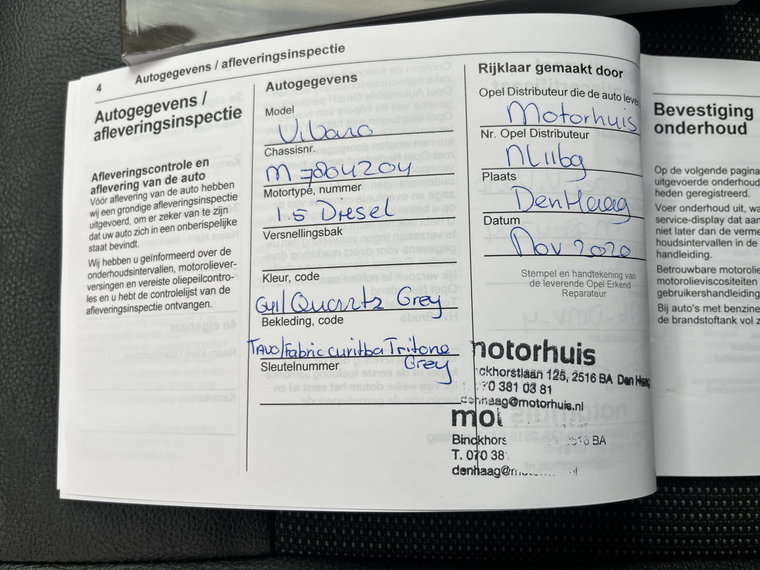 4
Autogegevens / afleveringsinspectie
Autogegevens /
afleveringsinspectie
Afleveringscontrole en
aflevering van de auto
Vóór aflevering van de auto hebben
wij een grondige afleveringsinspectie
uitgevoerd, om er zeker van te zijn
dat uw auto zich in een onberispelijke
staat bevindt.
Wij hebben u geïnformeerd over de
onderhoudsintervallen, motoroliever-
versingen en vereiste oliepeilcontro-
les en u hebt de controlelijst van de
afleveringsinspectie ontvangen.
Autogegevens
Model
Vivaro
Chassisnr.
M7804204
Motortype, nummer
1.5 Diesel
Versnellingsbak
Kleur, code
G41/Quartz Grey
Bekleding, code
TAVO/Fabric curitiba Tritone
Grey
Sleutelnummer
Rijklaar gemaakt door
Opel Distributeur die de auto leve
Motorhuis
Nr. Opel Distributeur
NL11bg
Plaats
Den Haag
Datum
Nov 2020
Stempel en handtekening van
de leverende Opel Erkend
Reparateur
motorhuis
ckhorstlaan 125, 2516 BA Den Haag
70 381 03 81
denhaag@motorhuis.nl
mot
Binckhors 2516 BA
T. 070 38
denhaag@m nl
Bevestiging
onderhoud
Op de volgende pagina
uitgevoerde onderhoud
heden geregistreerd.
Voer onderhoud uit, wa
service-display dat aan
niet later dan de verme
houdsintervallen in de
handleiding.
Betrouwbare motorolie
motorolieviscositeiten
gebruikershandleiding
Bij auto's met benzine
de brandstoftank vol z